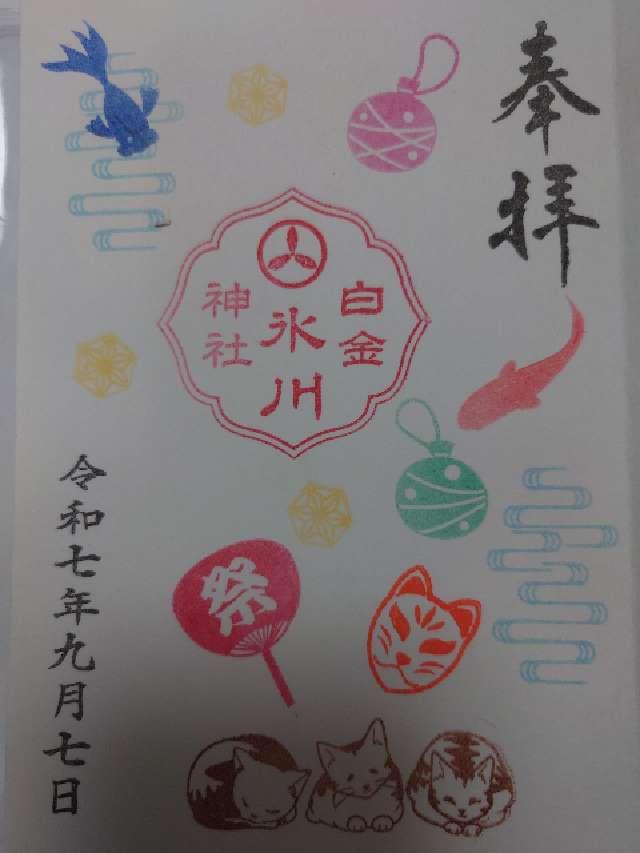 奉拝
白金
氷川
神社
祭
令和七年九月七日